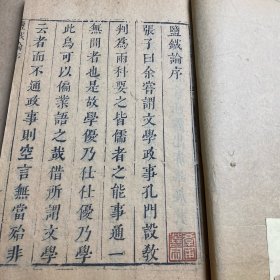 鹽鐵論序
張子曰余嘗謂文學政事孔門設敎
判爲兩科要之皆儒者之能事通一
無間者也是故學優乃仕仕優乃學
此烏可以偏業語之哉借所謂文學
云者而不通政事則空言無當殆非